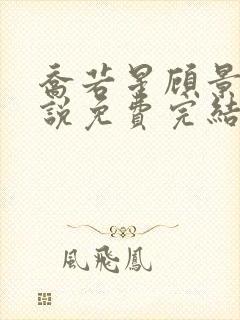 喬若星顧景
說免費完結
風飛鳳